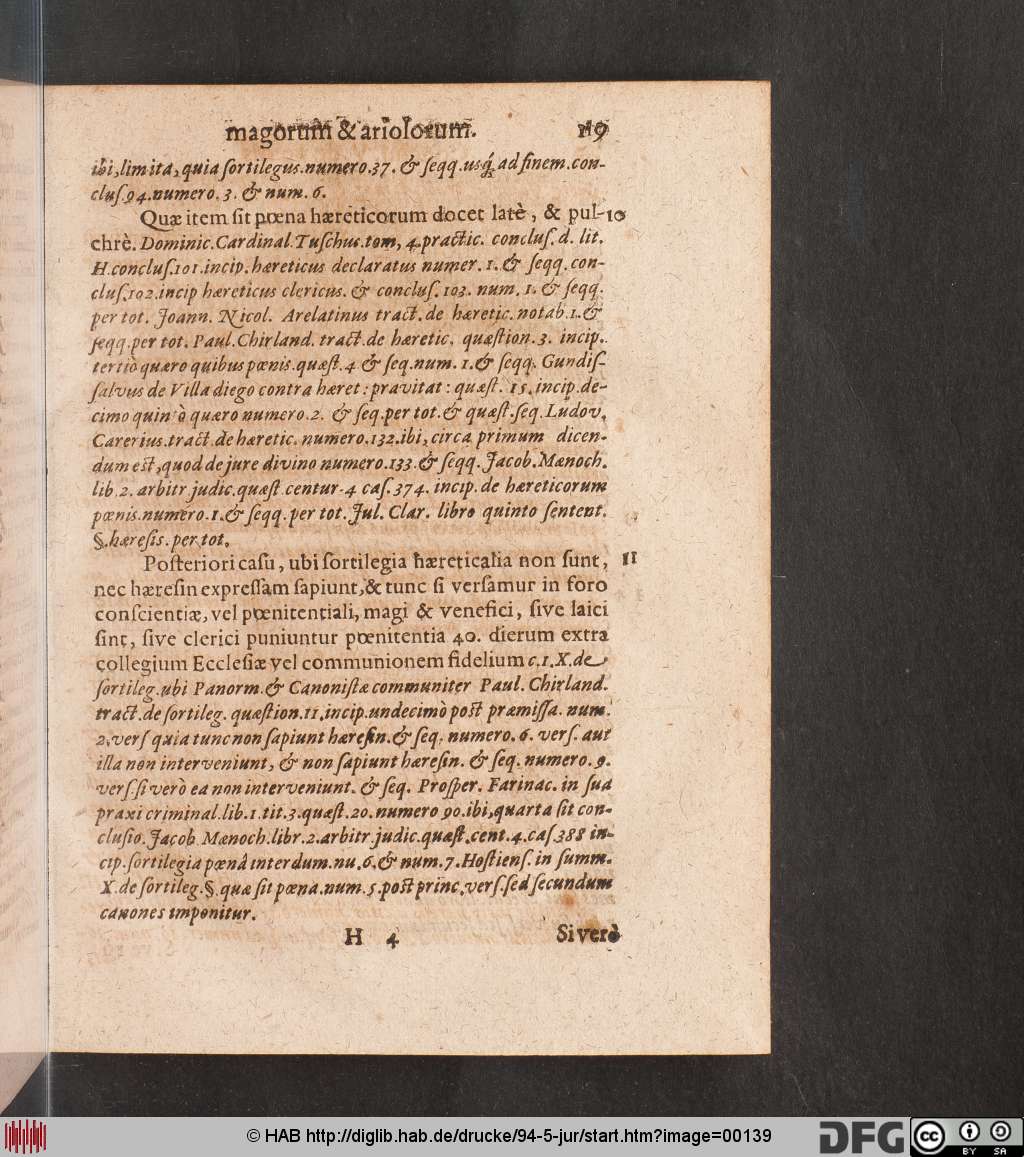 magorum & ariolorum. 119
ibi, limita, quia sortilegus. numero. 37. & seqq. usq́; ad finem. con-
clus. 94. numero. 3. & num. 6.
Quæ item sit pœna hæreticorum docet latè, & pul- 10
chrè. Dominic. Cardinal. Tuschus. tom, 4. practic. conclus. d. lit.
H. conclus. 101. incip. hæreticus declaratus numer. 1. & seqq. con-
clus. 102. incip hæreticus clericus. & conclus. 103. num. 1. & seqq.
per tot. Joann. Nicol. Arelatinus tract. de hæretic. notab. 1. &
seqq. per tot. Paul. Chirland. tract. de hæretic. quæstion. 3. incip.
tertiò quæro quibus pœnis. quæst. 4 & seq. num. 1. & seqq. Gundis-
salvus de Villa diego contra hæret: pravitat: quæst. 15. incip. de-
cimo quintò quæro numero. 2. & seq. per tot. & quæst. seq. Ludov.
Carerius. tract. de hæretic. numero. 132. ibi, circa primum dicen-
dum est, quod de jure divino numero. 133. & seqq. Jacob. Mænoch.
lib. 2. arbitr judic. quæst. centur. 4 cas. 374. incip. de hæreticorum
pœnis. numero. 1. & seqq. per tot. Jul. Clar. libro quinto sentent.
§. hæresis. per tot.
Posteriori casu, ubi sortilegia hæreticalia non sunt, 11
nec hæresin expressam sapiunt, & tunc si versamur in foro
conscientiæ, vel pœnitentiali, magi & venefici, sive laici
sint, sive clerici puniuntur pœnitentia 40. dierum extra
collegium Ecclesiæ vel communionem fidelium c. 1. X. de
sortileg. ubi Panorm. & Canonistæ communiter Paul. Chirland.
tract. de sortileg. quæstion. 11. incip. undecimò post præmissa. num.
2. vers quia tunc non sapiunt hæresin. & seq. numero. 6. vers. aut
illa non interveniunt, & non sapiunt hæresin. & seq. numero. 9.
vers. si verò ea non interveniunt. & seq. Prosper. Farinac. in sua
praxi criminal. lib. 1. tit. 3. quæst. 20. numero 90. ibi, quarta sit con-
clusio. Jacob Mænoch. libr. 2. arbitr. judic. quæst. cent. 4. cas. 388 in-
cip. sortilegia pœnâ interdum. nu. 6. & num. 7. Hostiens. in summ.
X. de sortileg. §. quæ sit pœna. num. 5. post princ. vers. sed secundum
canones imponitur.
H 4 Si verò
© HAB http://diglib.hab.de/drucke/94-5-jur/start.htm?image=00139
DFG cc BY SA